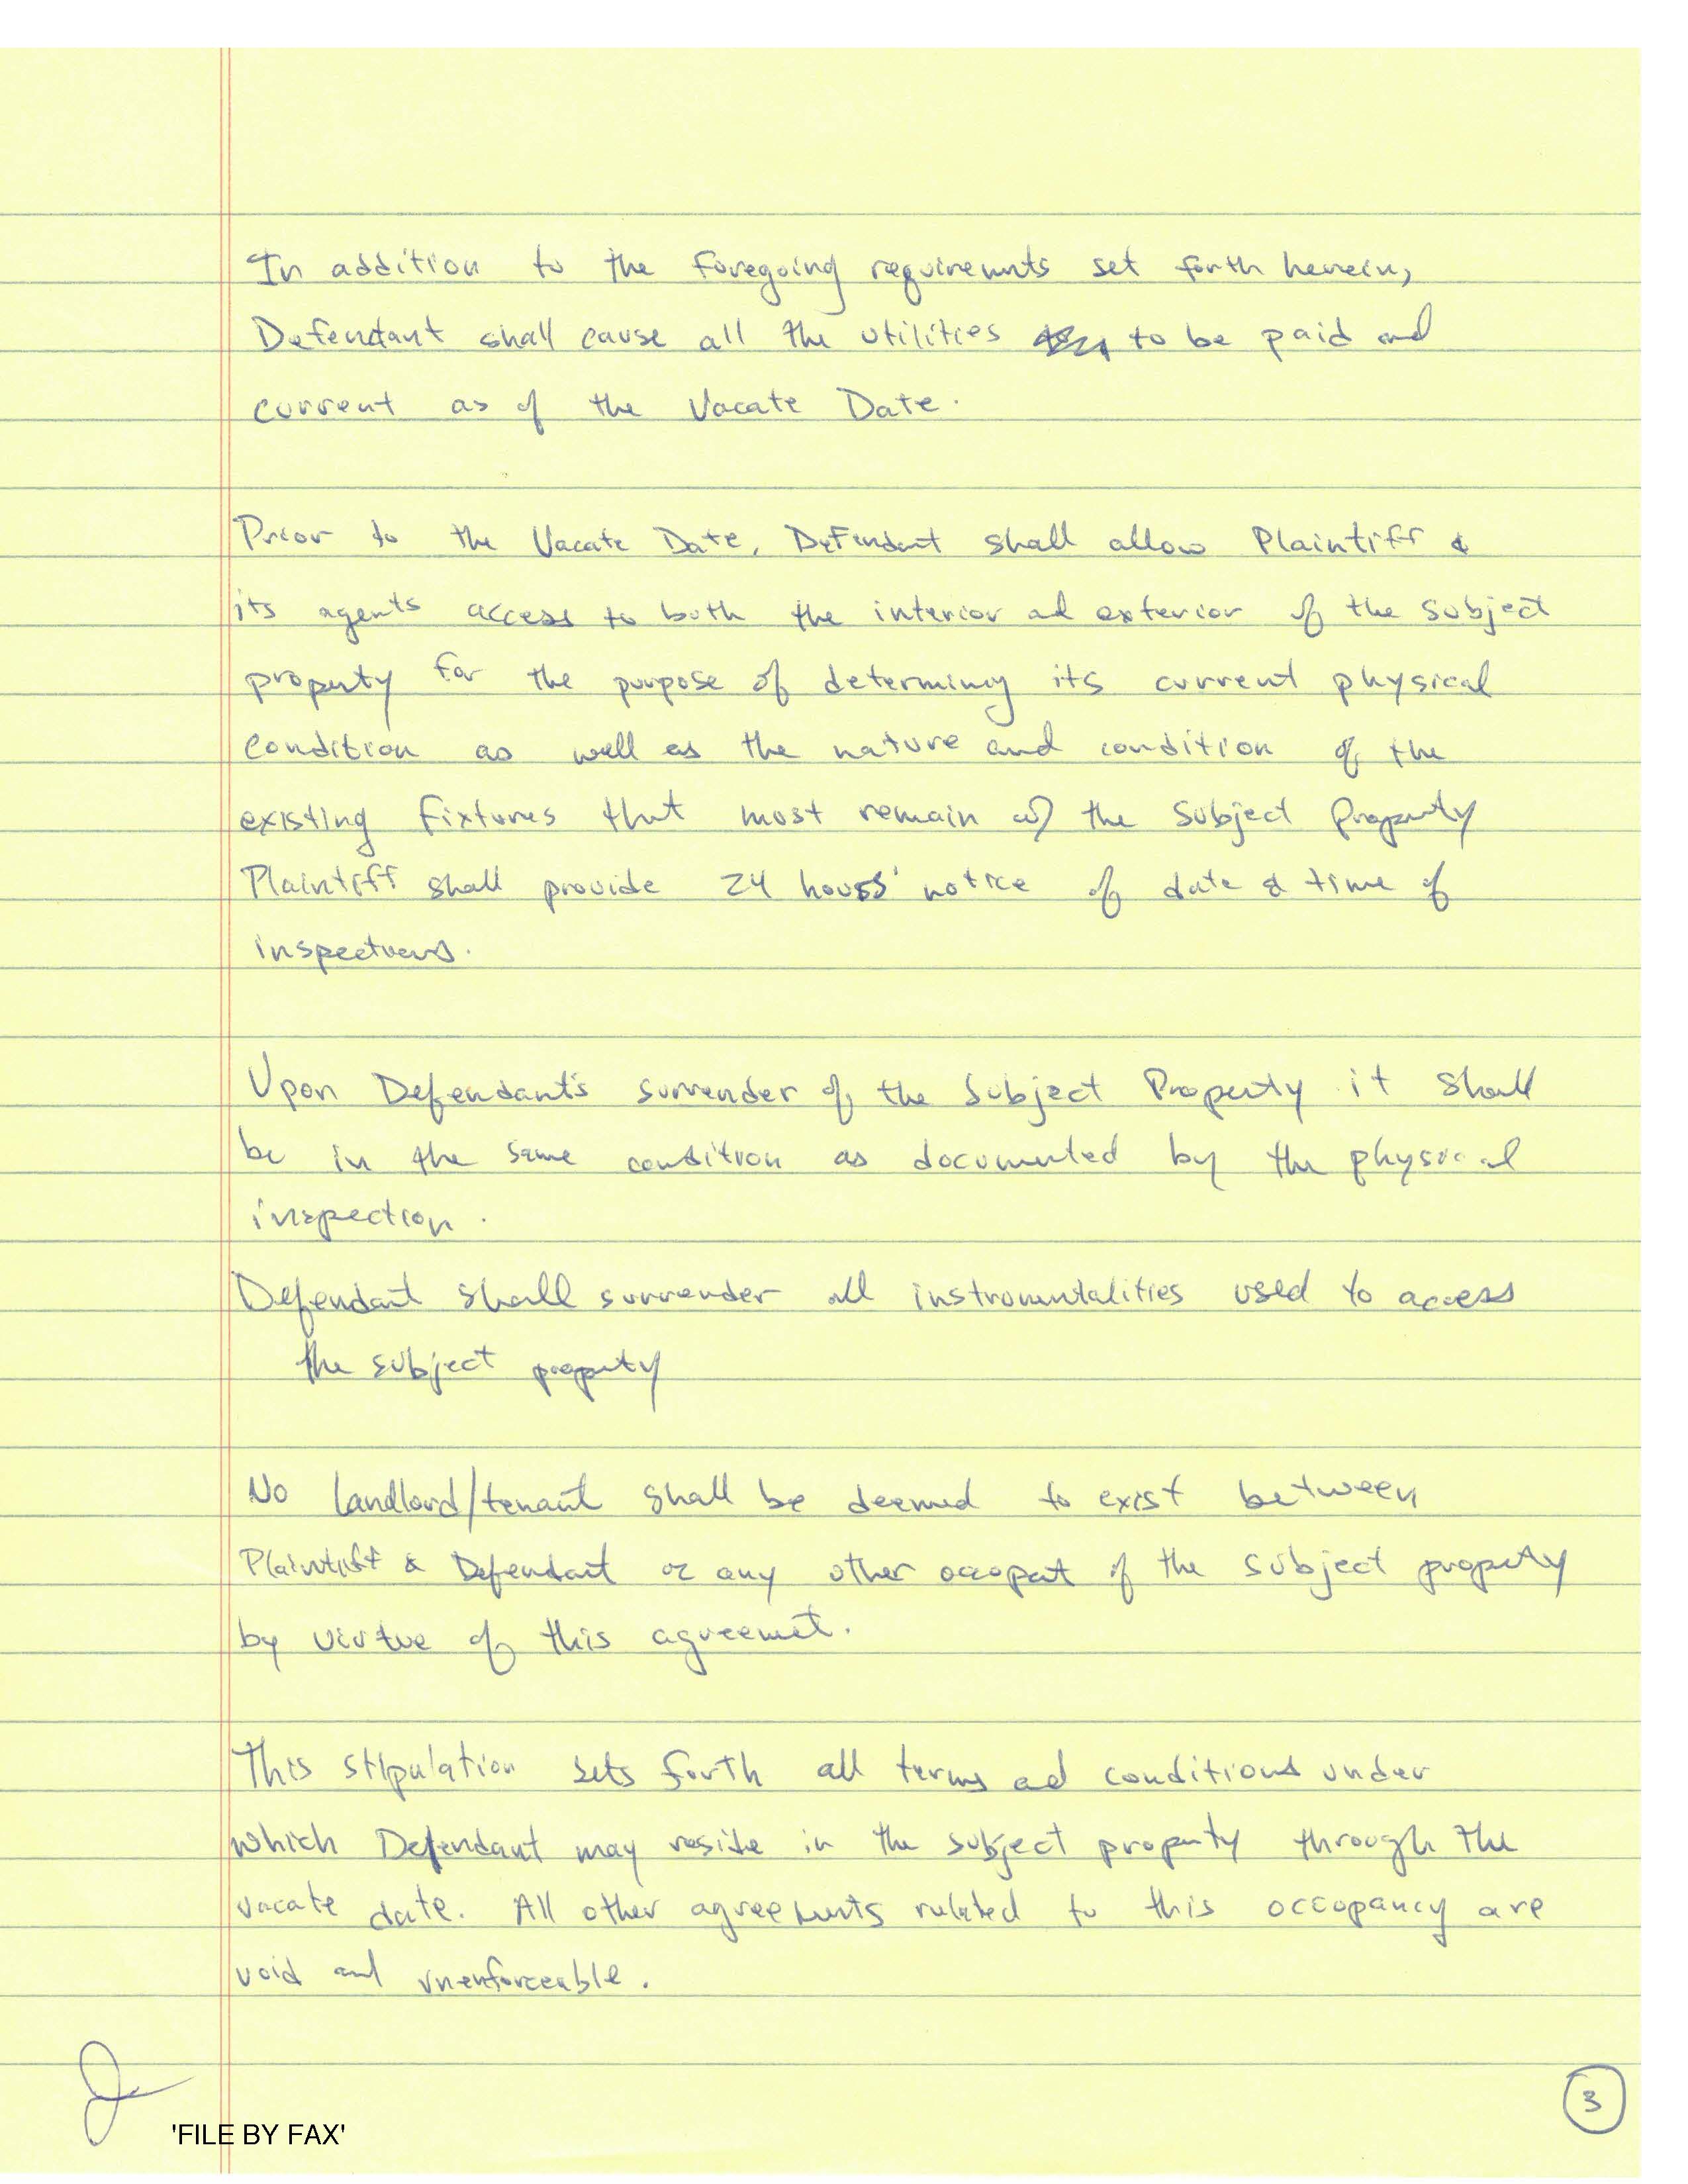 In addition to the foregoing requirements set forth herein,
Defendant shall cause all the utilities to be paid and
current as of the Vacate Date.
Prior to the Vacate Date, Defendant shall allow Plaintiff &
its agents access to both the interior ad exterior of the subject
property for the purpose of determining its current physical
condition as well as the nature and condition of the
existing fixtures that must remain w/ the Subject Property
Plaintiff shall provide 24 hours' notice of date & time of
inspections.
Upon Defendant's surrender of the Subject Property it shall
be in the same condition as documented by the physical
inspection.
Defendant shall surrender all instrumentalities used to access
the subject property
No landlord/tenant shall be deemed to exist between
Plaintiff & Defendant or any other occupant of the subject property
by virtue of this agreement.
This stipulation sets forth all terms ad conditions under
which Defendant may reside in the subject property through the
vacate date. All other agreements related to this occupancy are
void and unenforceable.
3
'FILE BY FAX'